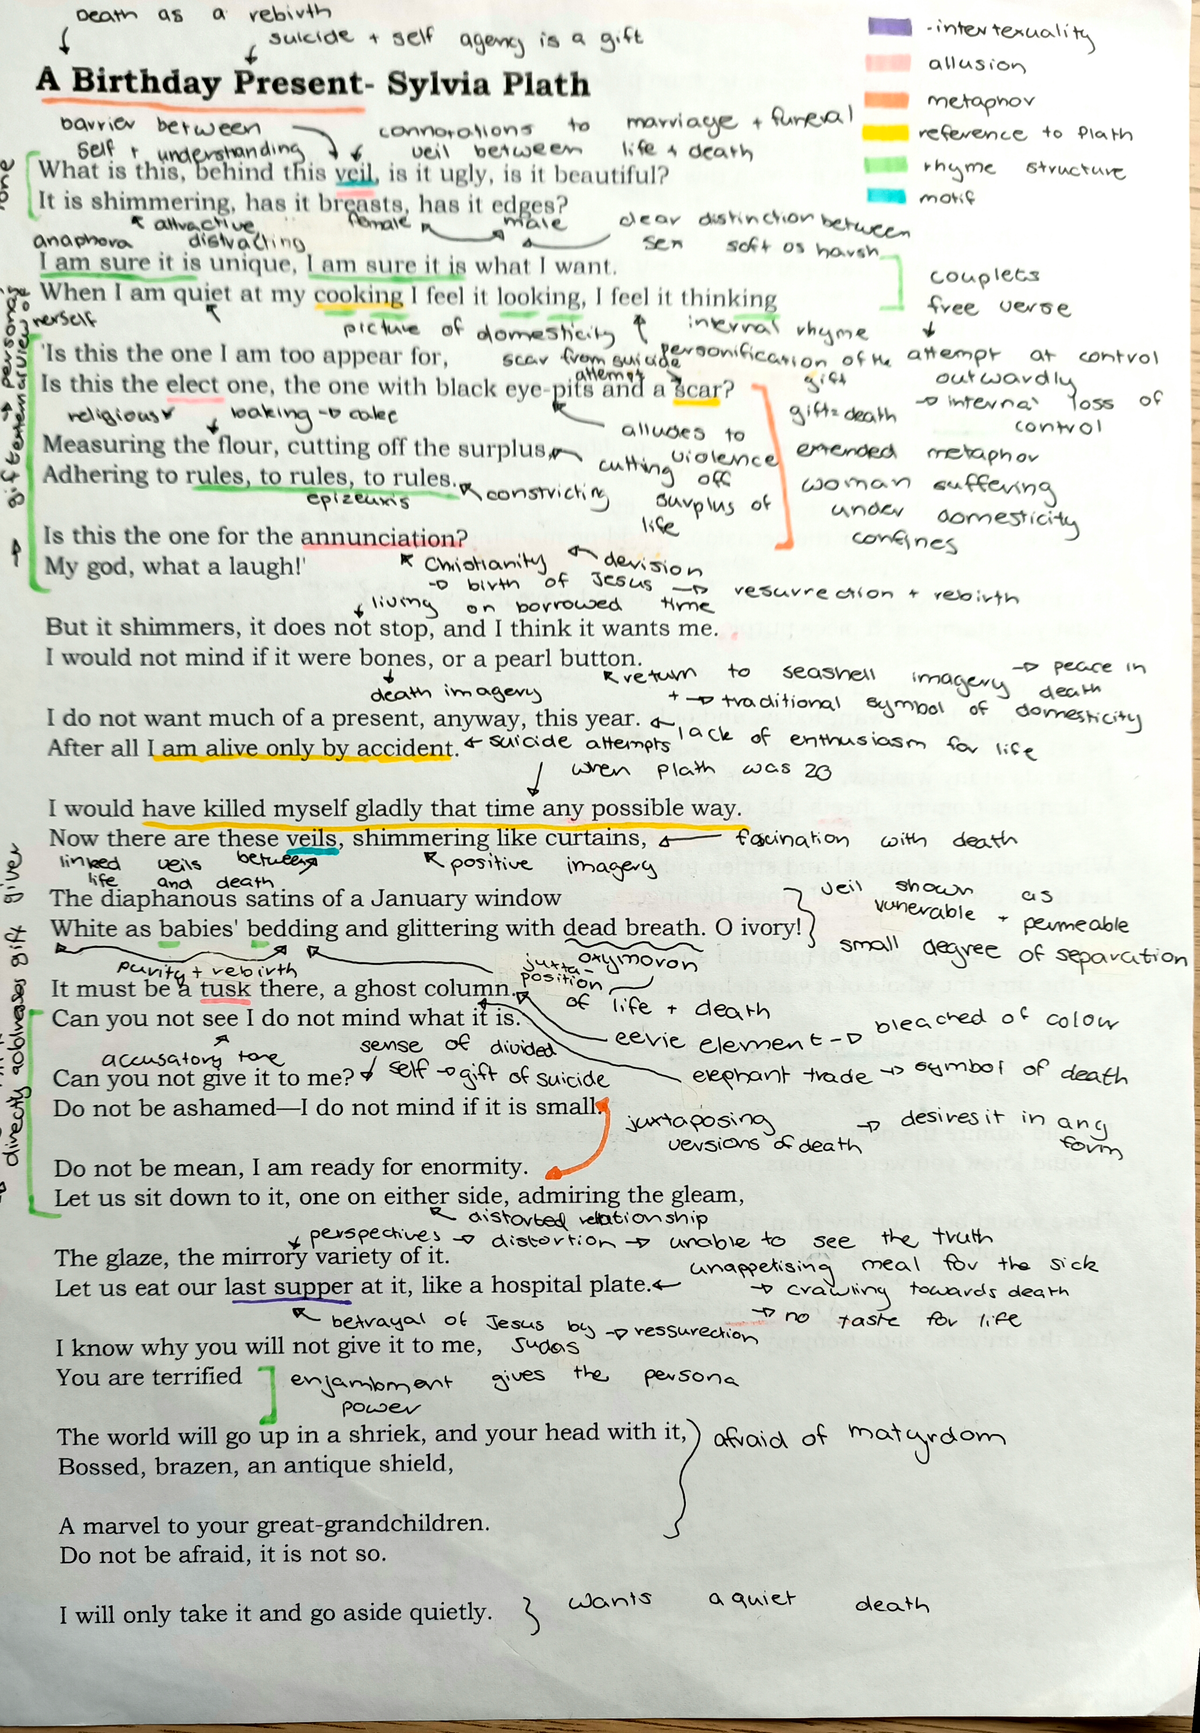 Death as a rebirth
suicide + self agency is a gift
A Birthday Present- Sylvia Plath
-intertexuality
allusion
metaphor
reference to Plath
rhyme structure
motif
barrier between
self + understanding
connorations to marriage + funeral
veil between life + death
What is this, behind this veil, is it ugly, is it beautiful?
It is shimmering, has it breasts, has it edges?
attractive
distracting
female
male
clear distinction between
sex soft os harsh
anaphora
I am sure it is unique, I am sure it is what I want.
When I am quiet at my cooking I feel it looking, I feel it thinking
couplets
free verse
herself
picture of domesticity
internal rhyme
'Is this the one I am too appear for,
scar from suicide
attempt
personification of the
gift
attempt at control
outwardly
internal loss of
control
Is this the elect one, the one with black eye-pits and a scar?
religious
baking → cake
alludes to
violence
gift= death
Measuring the flour, cutting off the surplus,
Adhering to rules, to rules, to rules.
epizeuxis
constricting
cutting off
surplus of
life
extended metaphor
woman suffering
under domesticity
confines
Is this the one for the annunciation?
My god, what a laugh!'
Christianity
derision
→ birth of Jesus → resurrection + rebirth
living on borrowed time
But it shimmers, it does not stop, and I think it wants me.
I would not mind if it were bones, or a pearl button.
death imagery
return to seashell imagery → peace in
death
+ → traditional symbol of domesticity
I do not want much of a present, anyway, this year.
lack of enthusiasm for life
After all I am alive only by accident.
suicide attempts
when plath was 20
I would have killed myself gladly that time any possible way.
Now there are these veils, shimmering like curtains,
fascination with death
linked veils between
life and death
positive imagery
The diaphanous satins of a January window
White as babies' bedding and glittering with dead breath. O ivory!
veil shown as
vunerable + permeable
small degree of separation
purity + rebirth
oxymoron
juxta-
position
of life + death
It must be a tusk there, a ghost column.
Can you not see I do not mind what it is.
eerie element → bleached of colour
elephant trade → symbol of death
accusatory tone
sense of divided
self → gift of suicide
Can you not give it to me?
Do not be ashamed—I do not mind if it is small.
juxtaposing
versions of death
→ desires it in any
form
Do not be mean, I am ready for enormity.
Let us sit down to it, one on either side, admiring the gleam,
distorted relationship
perspectives → distortion → unable to see the truth
The glaze, the mirrory variety of it.
Let us eat our last supper at it, like a hospital plate.
unappetising meal for the sick
→ crawling towards death
→ no taste for life
betrayal of Jesus by → ressurection
Judas
I know why you will not give it to me,
You are terrified
enjambment gives the persona
power
The world will go up in a shriek, and your head with it,
Bossed, brazen, an antique shield,
afraid of matyrdom
A marvel to your great-grandchildren.
Do not be afraid, it is not so.
I will only take it and go aside quietly.
wants a quiet death
directly addresses gift giver